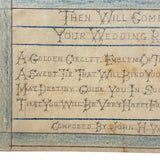 Then Will Com
Your Wedding R
A Golden Circlet, Emblem Of
A Sweet Tie That Will Bind You
May Destiny Guide You In Su
That You Will Be Very Happy
Composed By John H. W